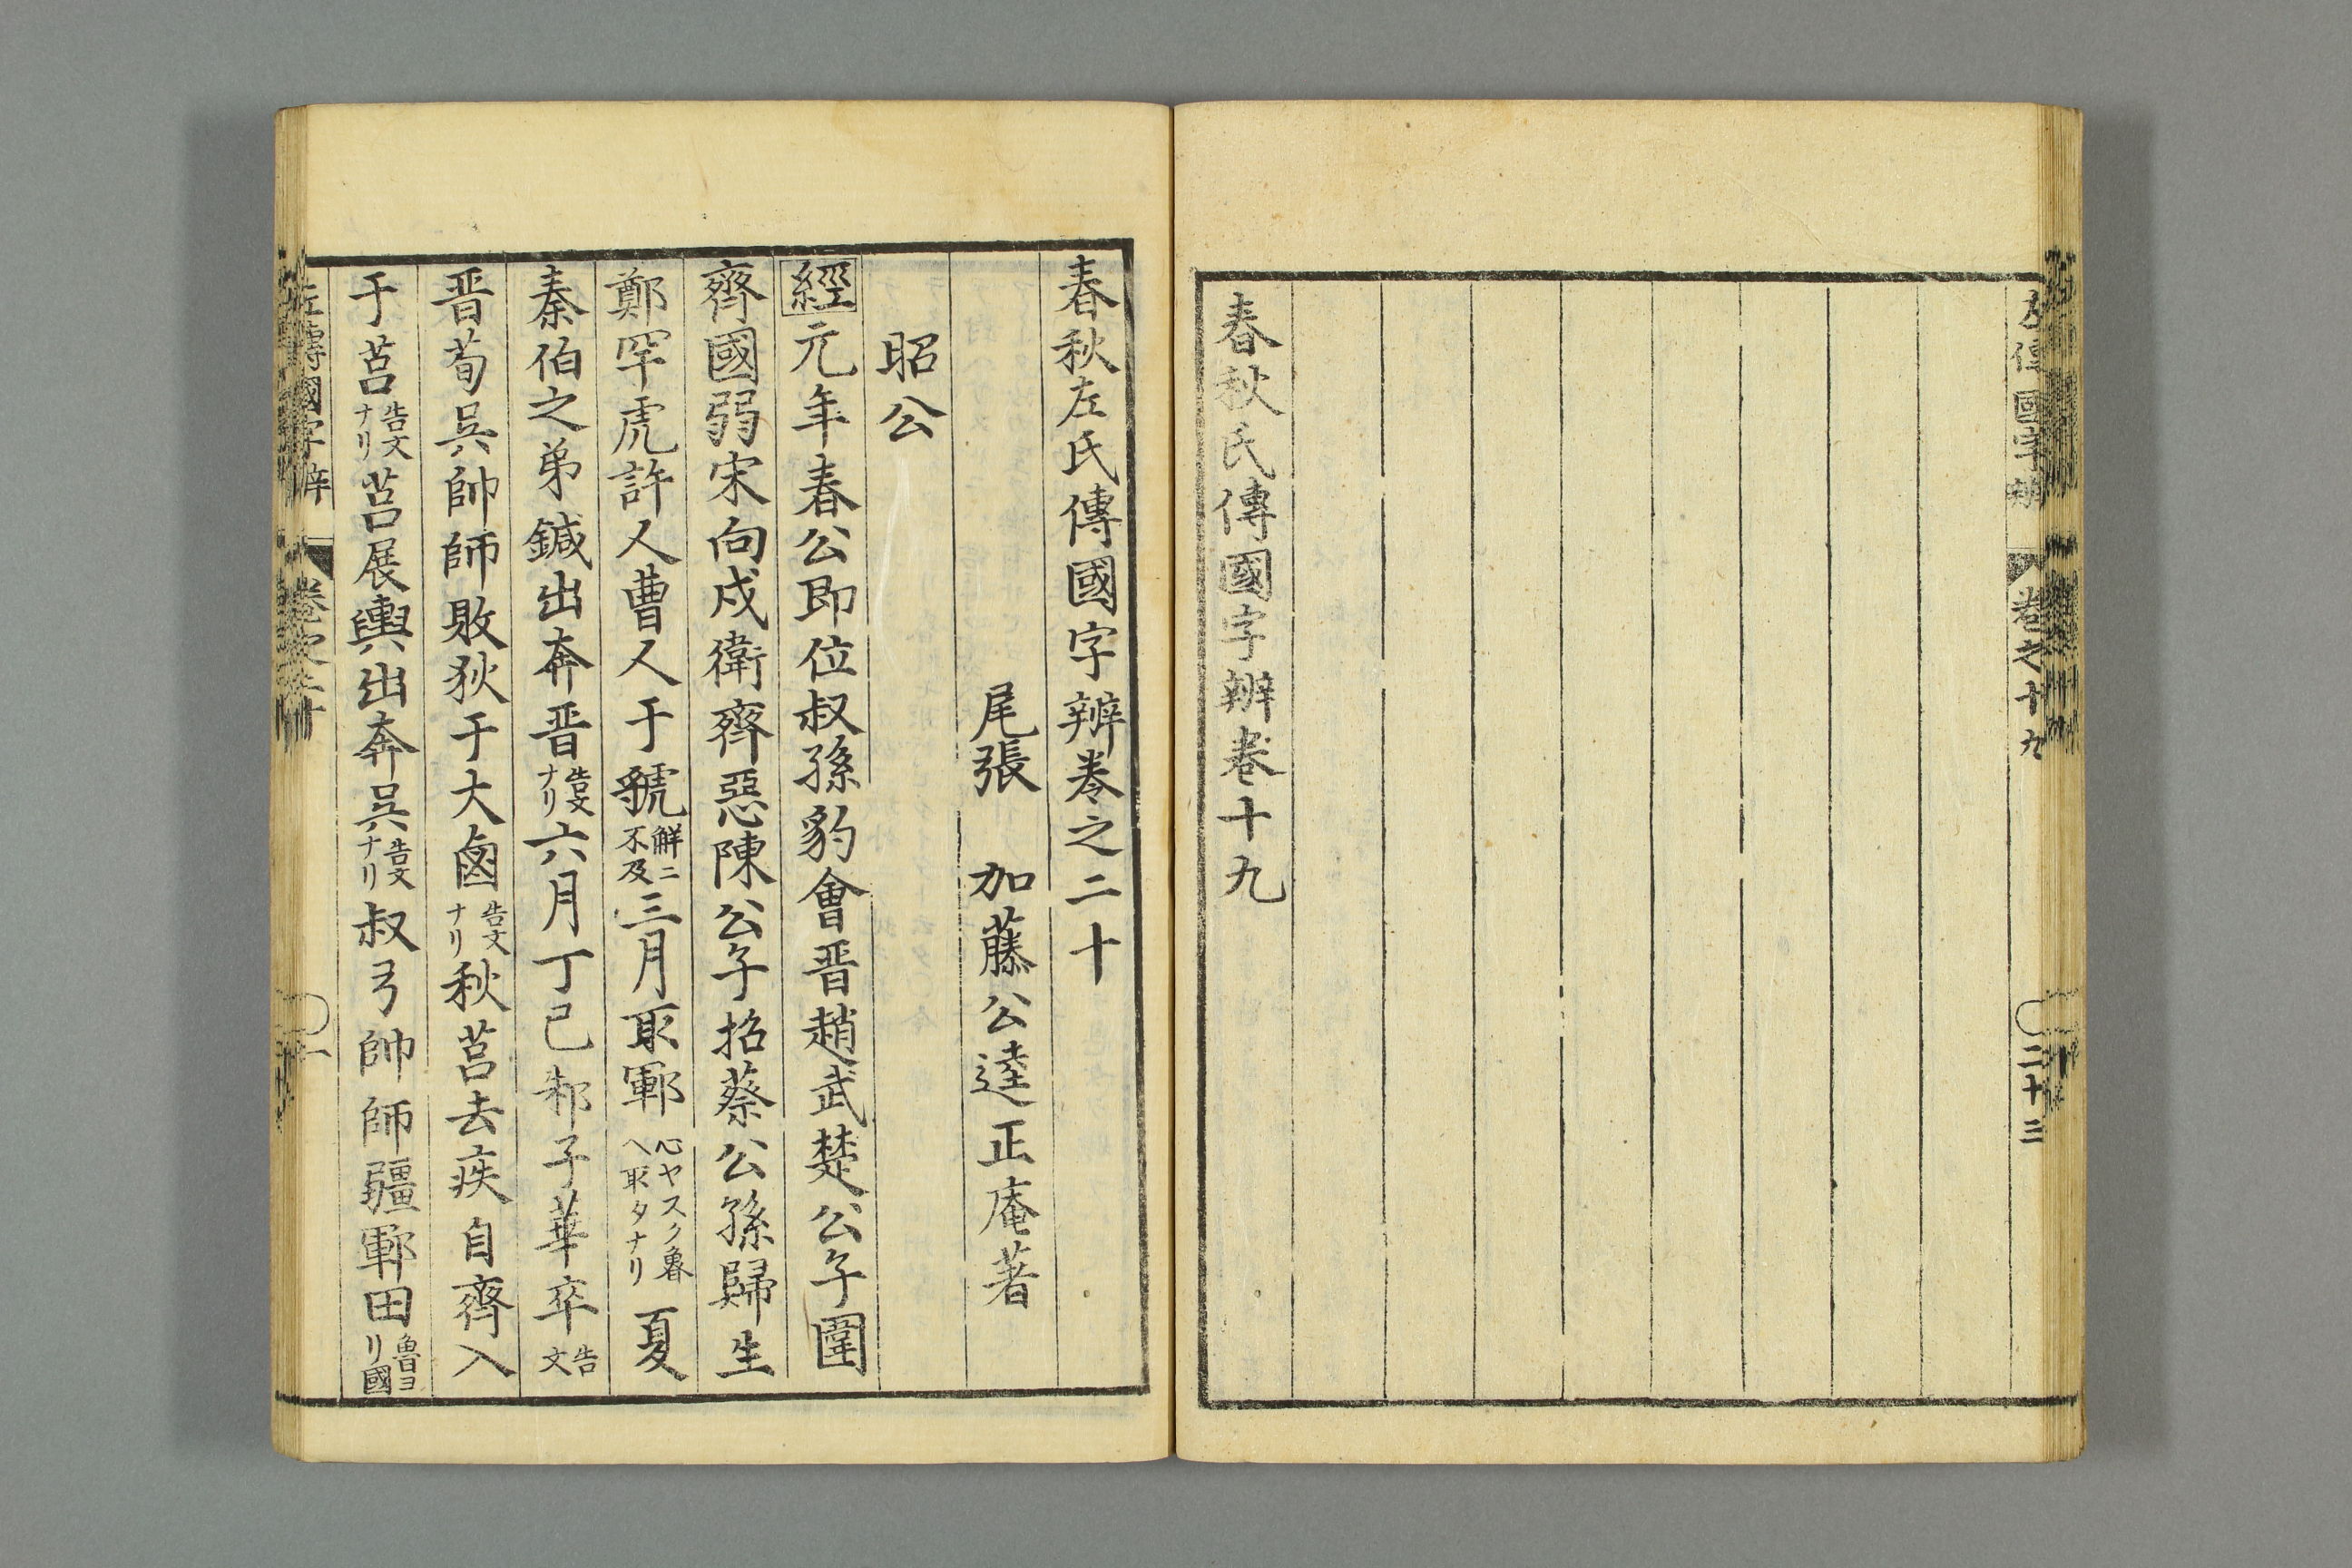 左傳國字辨 卷之十九 二十三
春秋氏傳國字辨卷十九
春秋左氏傳國字辨卷之二十
尾張 加藤公逵正庵著
昭公
經元年春公即位叔孫豹會晋趙武楚公子圍
齊國弱宋向戌衛齊惡陳公子招蔡公孫歸生
鄭罕虎許人曹人于虢解ニ不及三月取鄆心ヤスク魯ヘ取タナリ夏
秦伯之弟鍼出奔晋告文ナリ六月丁巳邾子華卒告文
晋荀吳帥師敗狄于大鹵告文ナリ秋莒去疾自齊入
于莒告文ナリ莒展輿出奔吳告文ナリ叔弓帥師疆鄆田魯ヨリ國
左傳國字辨 卷之二十 一